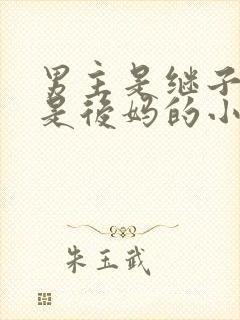 男主是继子
是後妈的小
朱玉武